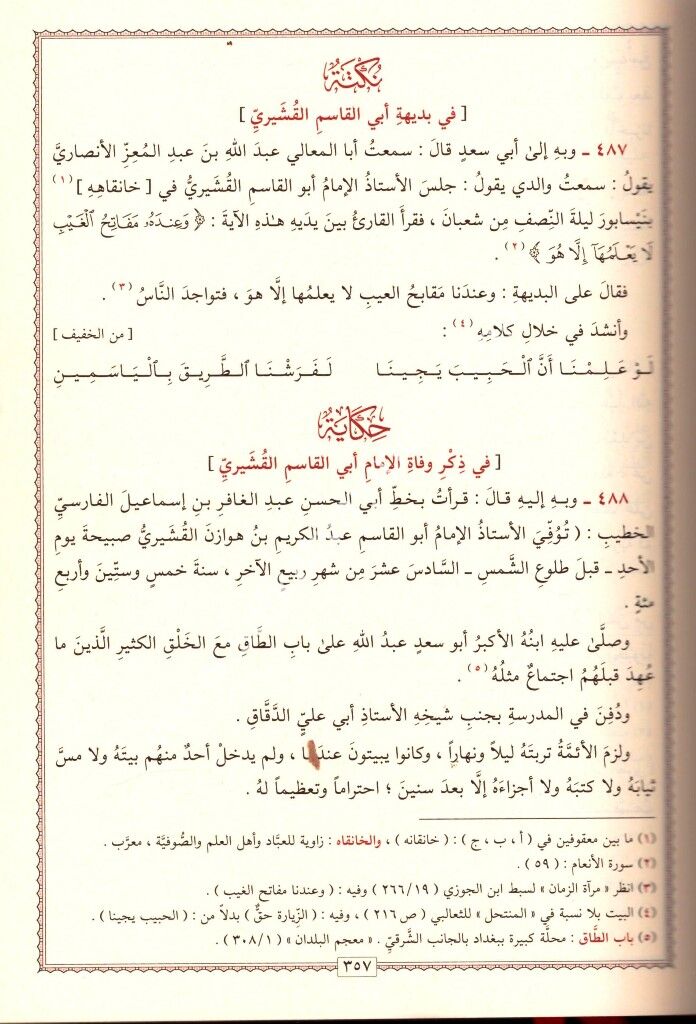 نُكْتَةٌ
[ في بديهةِ أبي القاسمِ القُشَيريِّ ]
٤٨٧ ـ وبهِ إلىٰ أبي سعدٍ قالَ : سمعتُ أبا المعالي عبدَ اللهِ بنَ عبدِ المُعِزِّ الأنصاريَّ
يقولُ : سمعتُ والدي يقولُ : جلسَ الأستاذُ الإمامُ أبو القاسمِ القُشَيريُّ في [ خانقاهِهِ ] (١)
بنَيْسابورَ ليلةَ النِّصفِ مِن شعبانَ ، فقرأَ القارئُ بينَ يدَيهِ هـٰذهِ الآيةَ : ﴿ وَعِندَهُۥ مَفَاتِحُ ٱلْغَيْبِ
لَا يَعْلَمُهَآ إِلَّا هُوَ ﴾ (٢) .
فقالَ على البديهةِ : وعندَنا مَقابحُ العيبِ لا يعلمُها إلَّا هوَ ، فتواجدَ النَّاسُ (٣) .
وأنشدَ في خلالِ كلامِهِ (٤) : [ من الخفيف ]
لَـوْ عَـلِـمْـنَـا أَنَّ ٱلْـحَـبِـيـبَ يَـجِـيـنَـا لَـفَـرَشْـنَـا ٱلـطَّـرِيـقَ بِـٱلْـيَـاسَـمِـيـنِ
حِكَايَةٌ
[ في ذِكْرِ وفاةِ الإمامِ أبي القاسمِ القُشَيريِّ ]
٤٨٨ ـ وبهِ إليهِ قالَ : قرأتُ بخطِّ أبي الحسنِ عبدِ الغافرِ بنِ إسماعيلَ الفارسيِّ
الخطيبِ : ( تُوُفِّيَ الأستاذُ الإمامُ أبو القاسمِ عبدُ الكريمِ بنُ هوازنَ القُشَيريُّ صبيحةَ يومِ
الأحدِ ـ قبلَ طلوعِ الشَّمسِ ـ السَّادسَ عشرَ مِن شهرِ ربيعٍ الآخرِ ، سنةَ خمسٍ وستِّينَ وأربعِ
مئةٍ .
وصلَّىٰ عليهِ ابنُهُ الأكبرُ أبو سعدٍ عبدُ اللهِ علىٰ بابِ الطَّاقِ معَ الخَلْقِ الكثيرِ الَّذينَ ما
عُهِدَ قبلَهُمُ اجتماعٌ مثلُهُ (٥) .
ودُفِنَ في المدرسةِ بجنبِ شيخِهِ الأستاذِ أبي عليٍّ الدَّقَّاقِ .
ولزمَ الأئمَّةُ تربتَهُ ليلاً ونهاراً ، وكانوا يبيتونَ عندَها ، ولم يدخلْ أحدٌ منهُم بيتَهُ ولا مسَّ
ثيابَهُ ولا كتبَهُ ولا أجزاءَهُ إلَّا بعدَ سنينَ ؛ احتراماً وتعظيماً لهُ .
(١) ما بين معقوفين في ( أ ، ب ، ج ) : ( خانقانه ) ، والخانقاه : زاوية للعبَّاد وأهل العلم والصُّوفيَّة ، معرَّب .
(٢) سورة الأنعام : ( ٥٩ ) .
(٣) انظر « مرآة الزمان » لسبط ابن الجوزي ( ١٩/ ٢٦٦ ) وفيه : ( وعندنا مفاتح الغيب ) .
(٤) البيت بلا نسبة في « المنتحل » للثعالبي ( ص ٢١٦ ) ، وفيه : ( الزِّيارة حقٌّ ) بدلاً من : ( الحبيب يجينا ) .
(٥) باب الطَّاق : محلَّة كبيرة ببغداد بالجانب الشَّرقيِّ . « معجم البلدان » ( ١/ ٣٠٨ ) .
٣٥٧